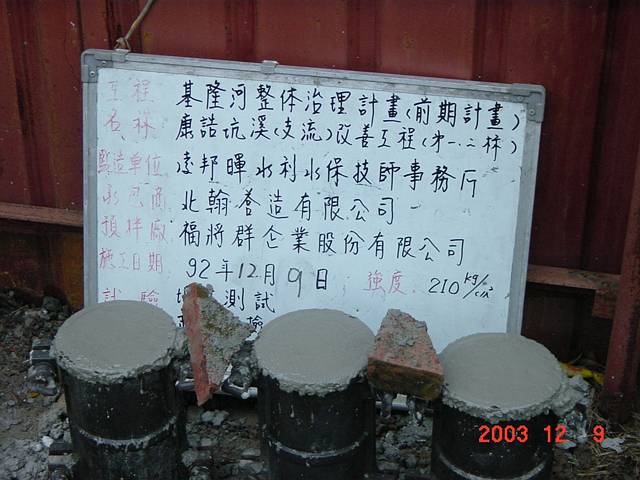 工程 基隆河整体治理計畫(前期計畫)
名称 康誥坑溪(支流)改善工程(第一.二标)
監造單位 凌邦暉水利水保技師事務所
承包商 北翰營造有限公司
預拌廠 福將群企業股份有限公司
施工日期 92年12月9日 強度 210 kg/cm²
試驗 測試
2003 12 9